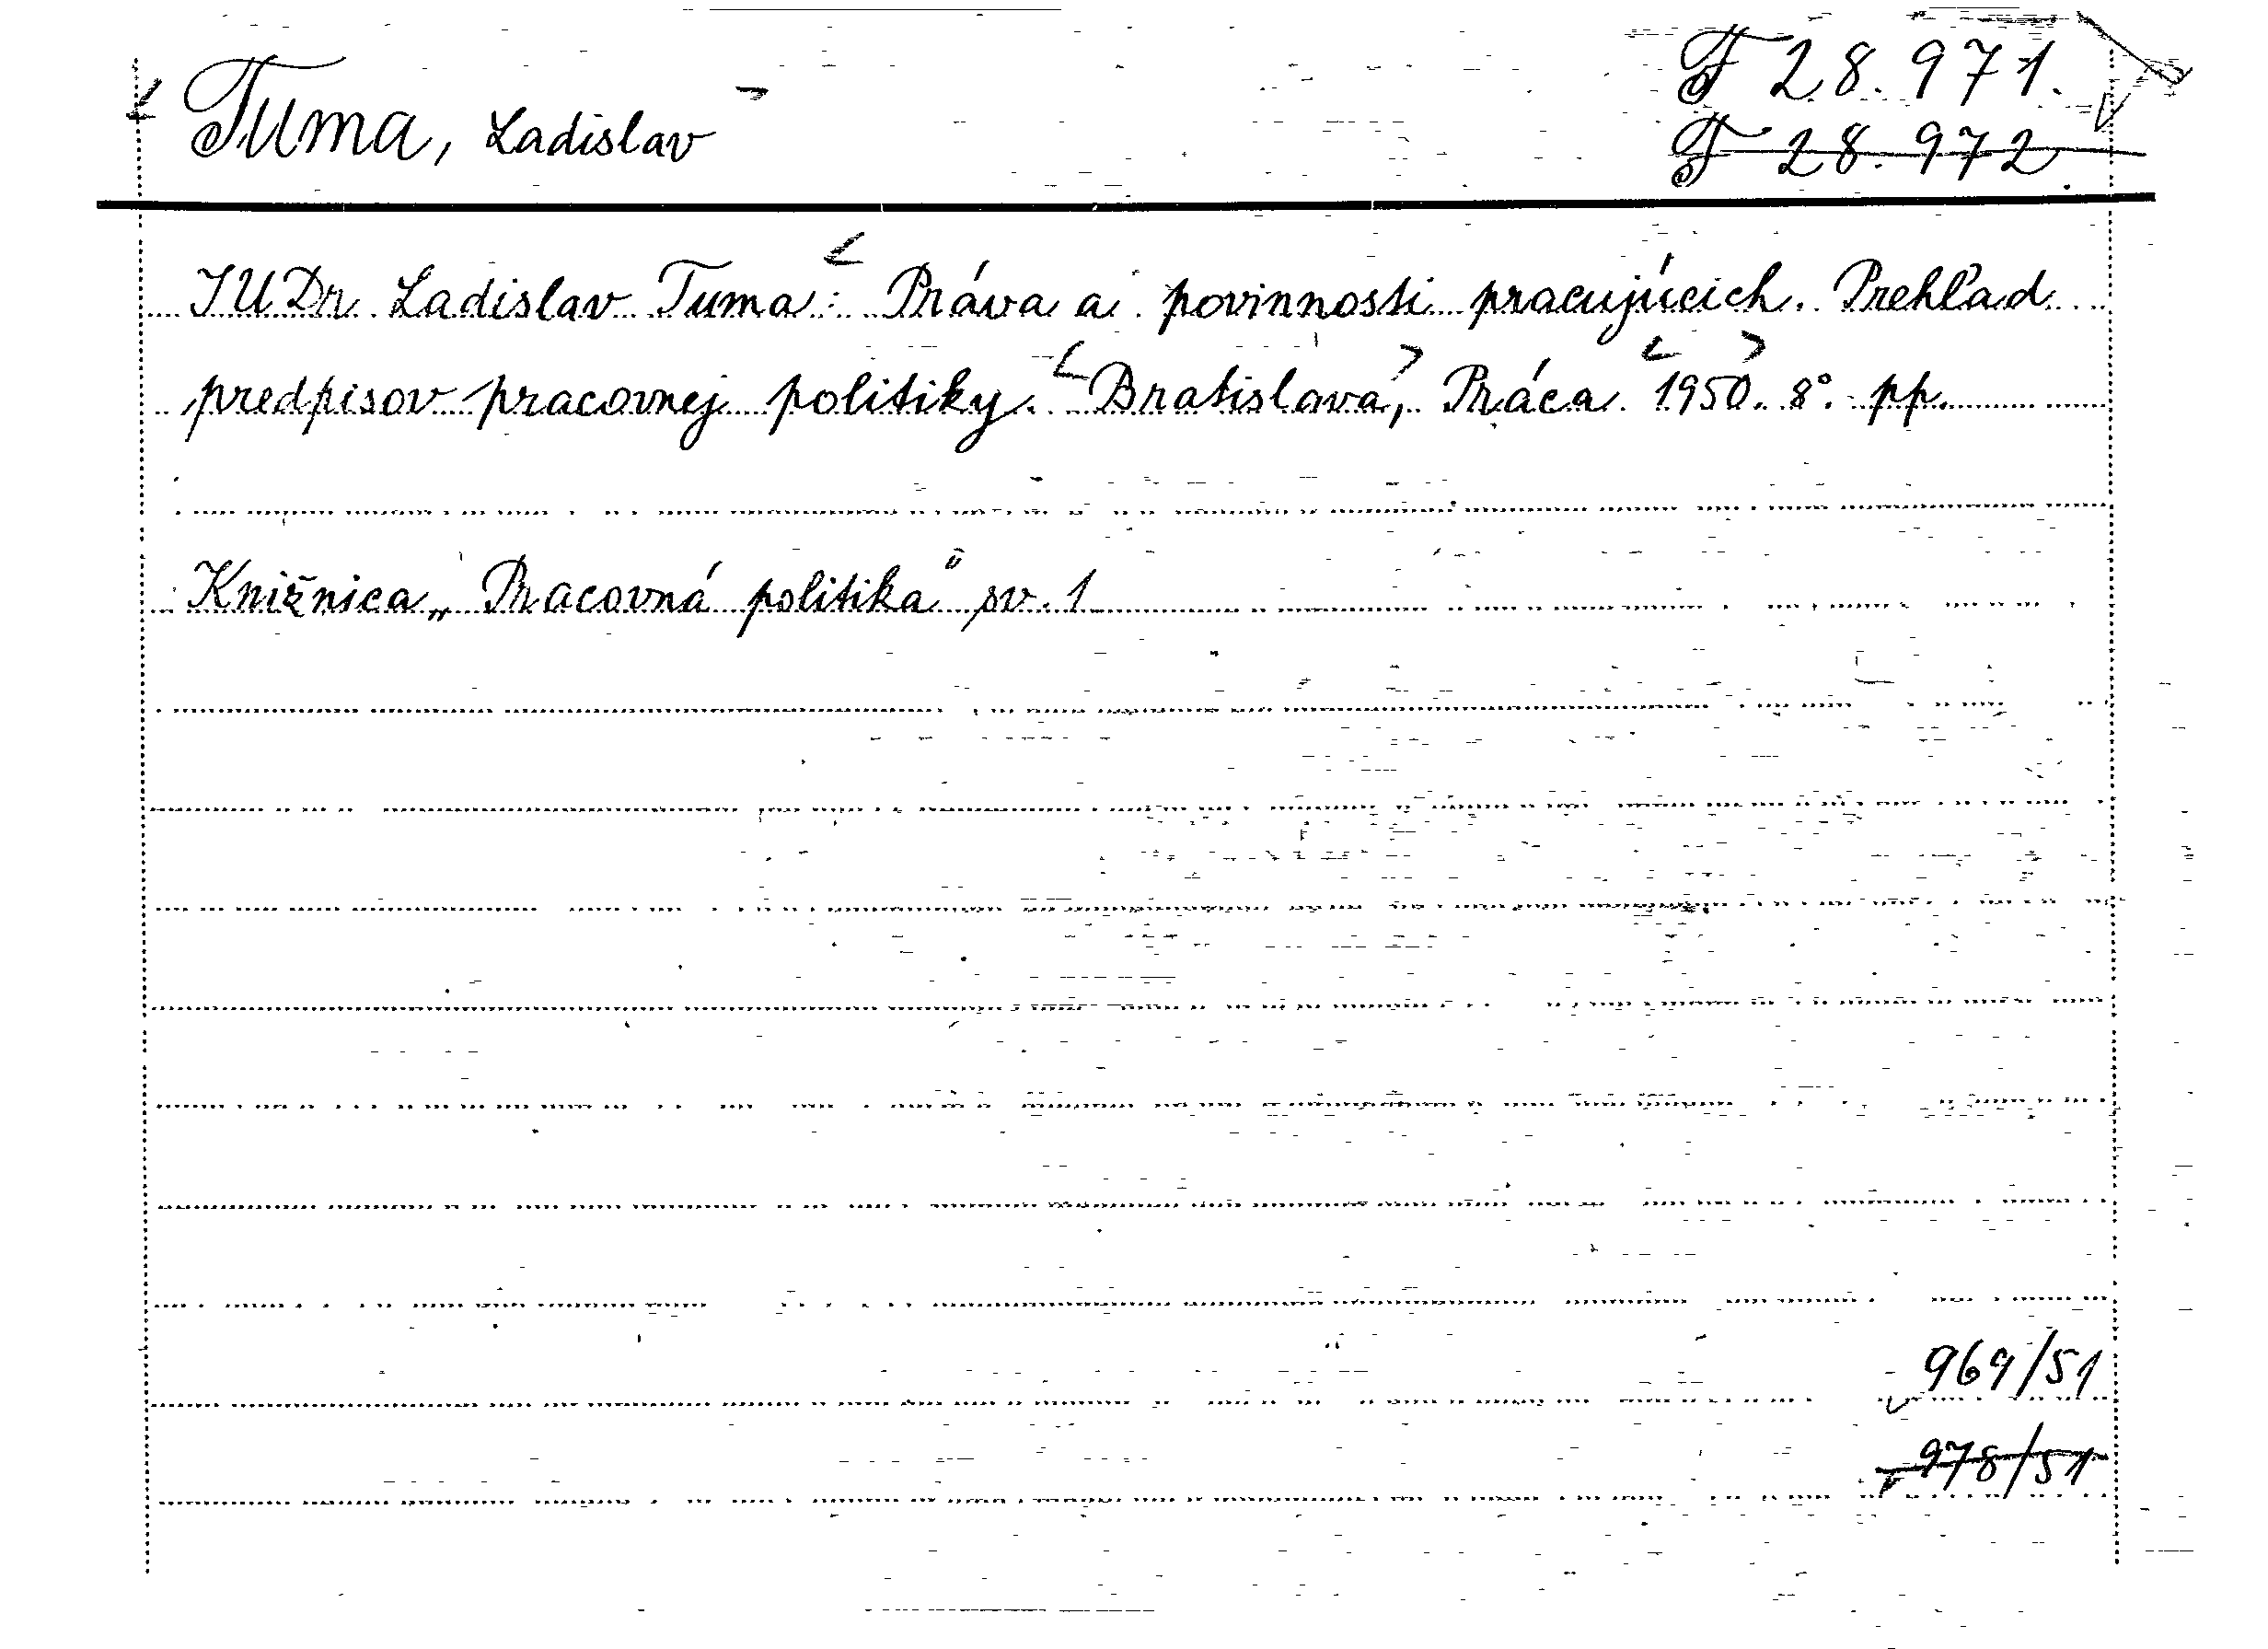 Tuma, Ladislav
F 28.971.
F 28.972
JUDr. Ladislav Tuma: Práva a povinnosti pracujúcich. Prehľad
predpisov pracovnej politiky. Bratislava, Práca 1950. 8°. pp.
Knižnica „Pracovná politika" sv. 1
969/51
978/51